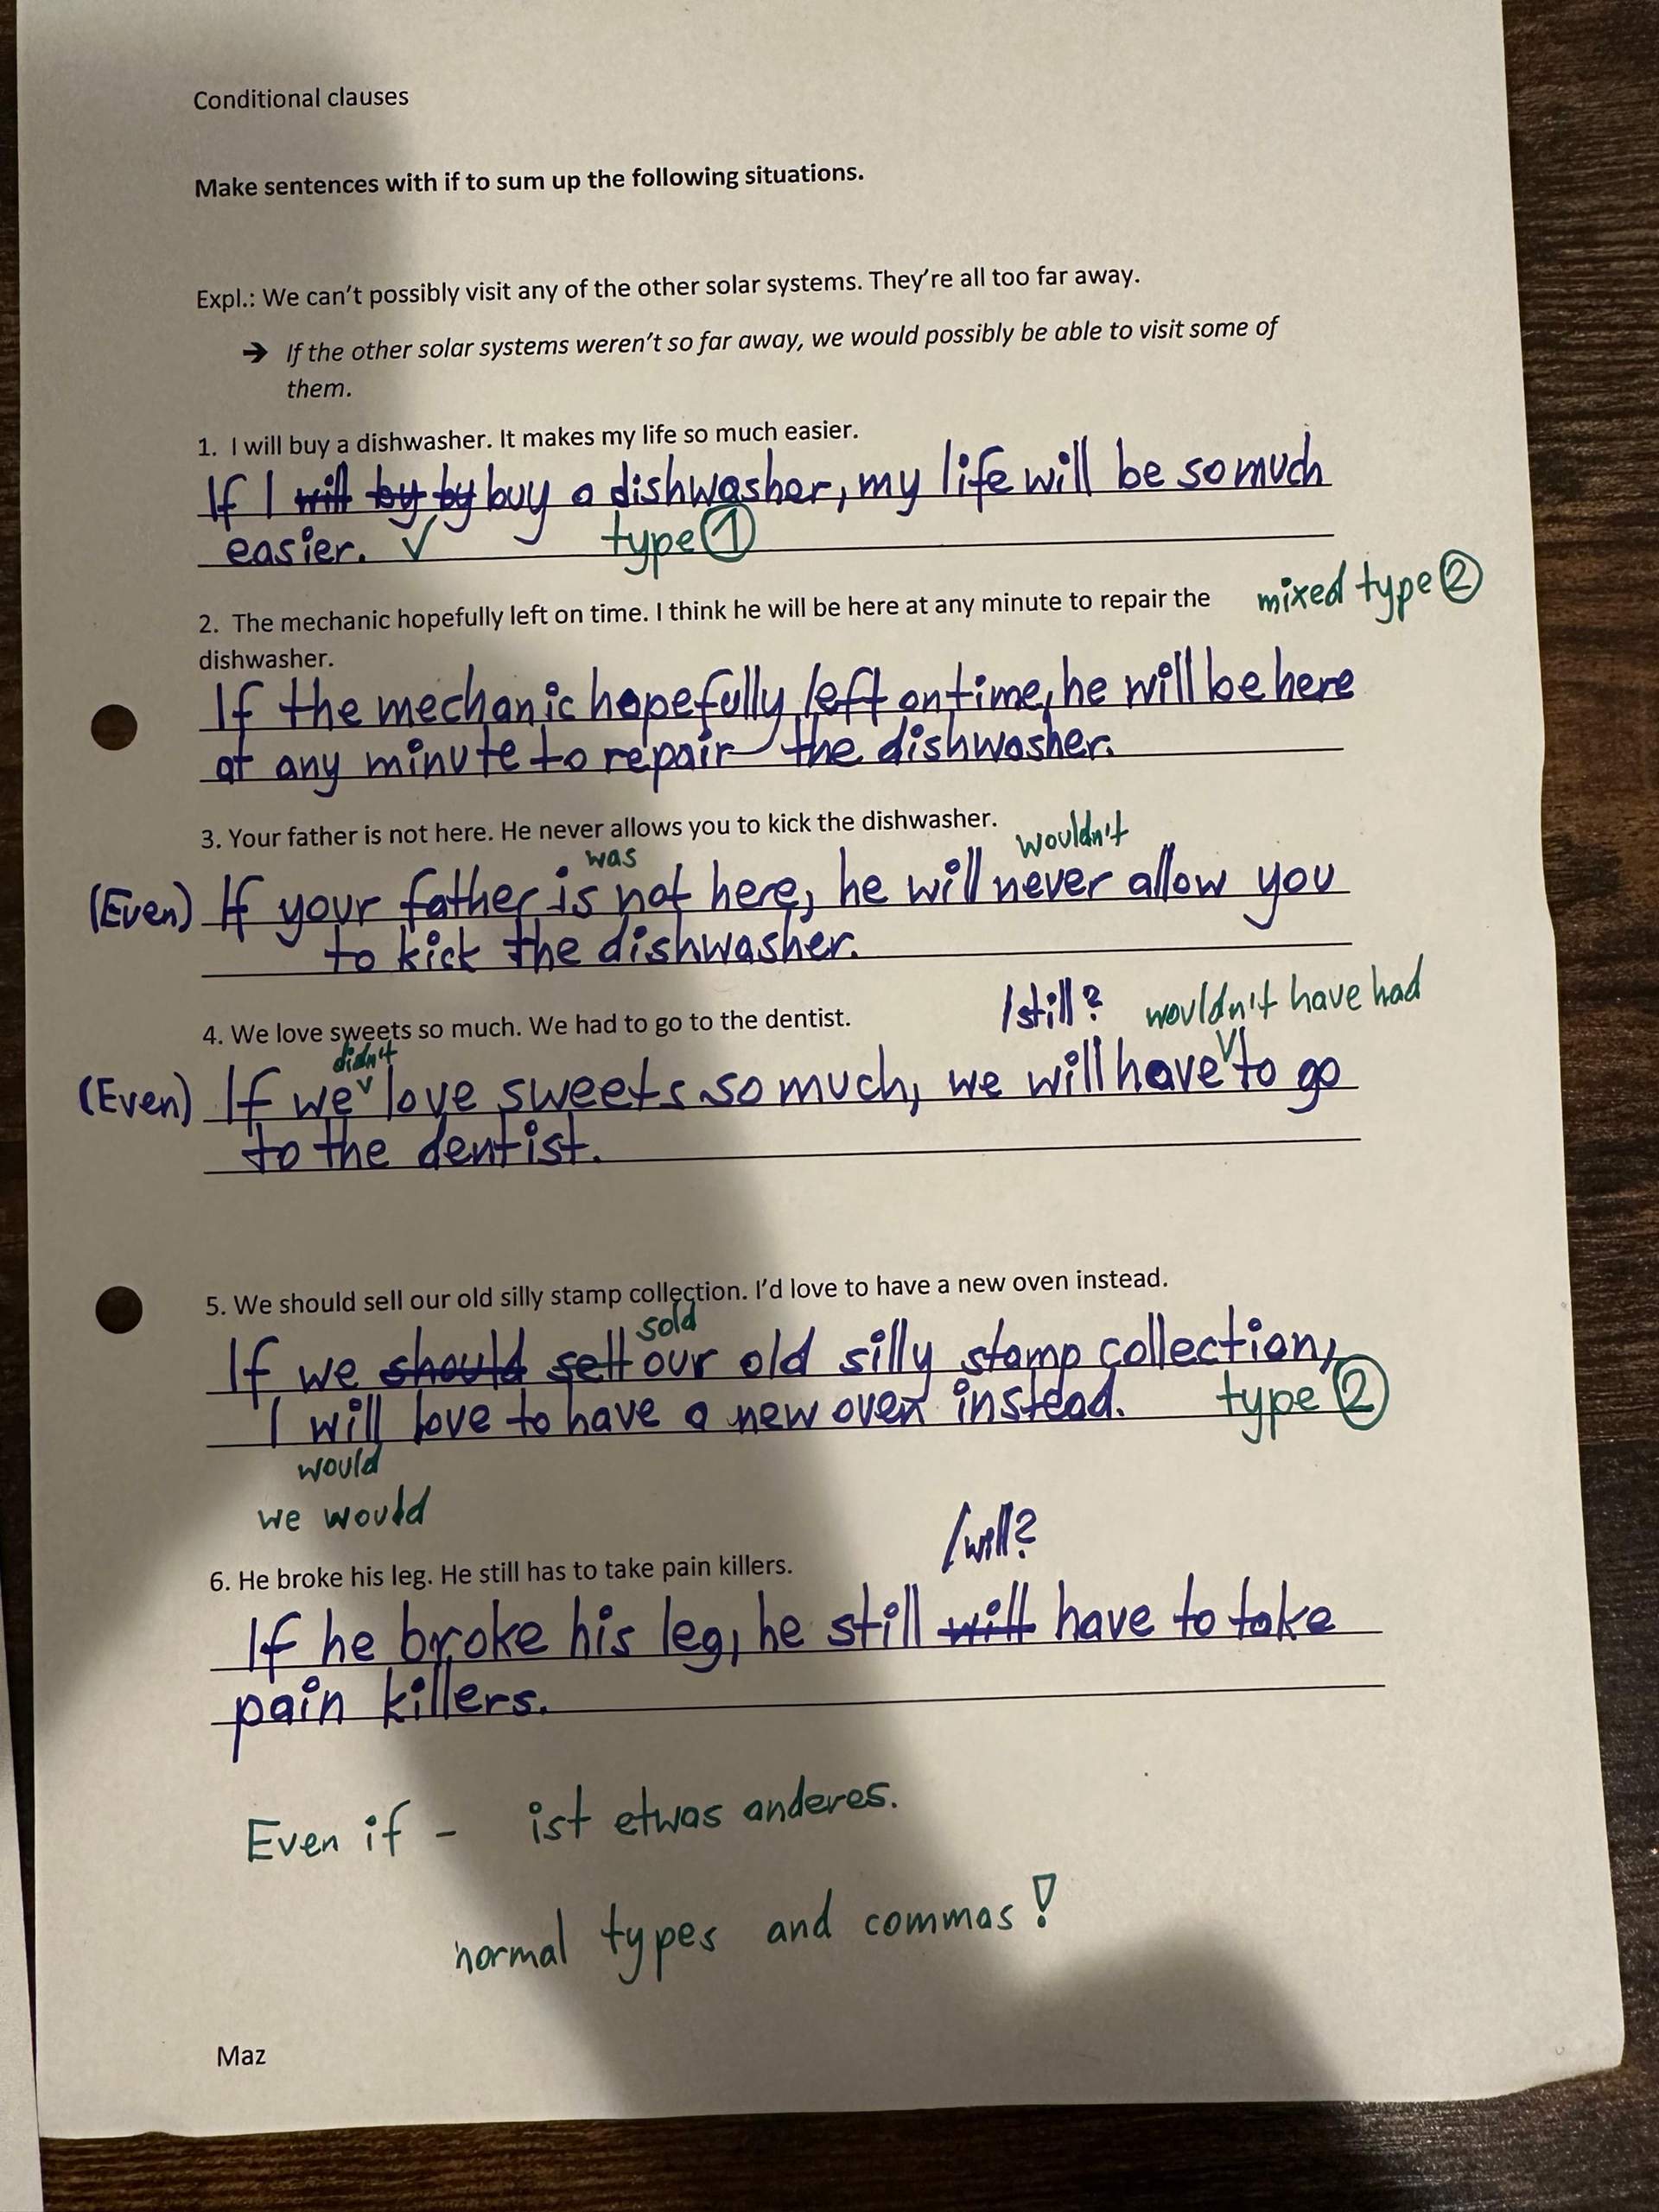 Conditional clauses
Make sentences with if to sum up the following situations.
Expl.: We can't possibly visit any of the other solar systems. They're all too far away.
➔ If the other solar systems weren't so far away, we would possibly be able to visit some of
them.
1. I will buy a dishwasher. It makes my life so much easier.
If I will by by buy a dishwasher, my life will be so much
easier. ✓ type ①
2. The mechanic hopefully left on time. I think he will be here at any minute to repair the mixed type ②
dishwasher.
If the mechanic hopefully left on time, he will be here
at any minute to repair the dishwasher.
3. Your father is not here. He never allows you to kick the dishwasher.
was wouldn't
(Even) If your father is not here, he will never allow you
to kick the dishwasher.
/still? wouldn't have had
4. We love sweets so much. We had to go to the dentist.
didn't
(Even) If we love sweets so much, we will have to go
to the dentist.
5. We should sell our old silly stamp collection. I'd love to have a new oven instead.
sold
If we should sell our old silly stamp collection,
I will love to have a new oven instead. type ②
would
we would
/will?
6. He broke his leg. He still has to take pain killers.
If he broke his leg, he still will have to take
pain killers.
Even if - ist etwas anderes.
normal types and commas!
Maz